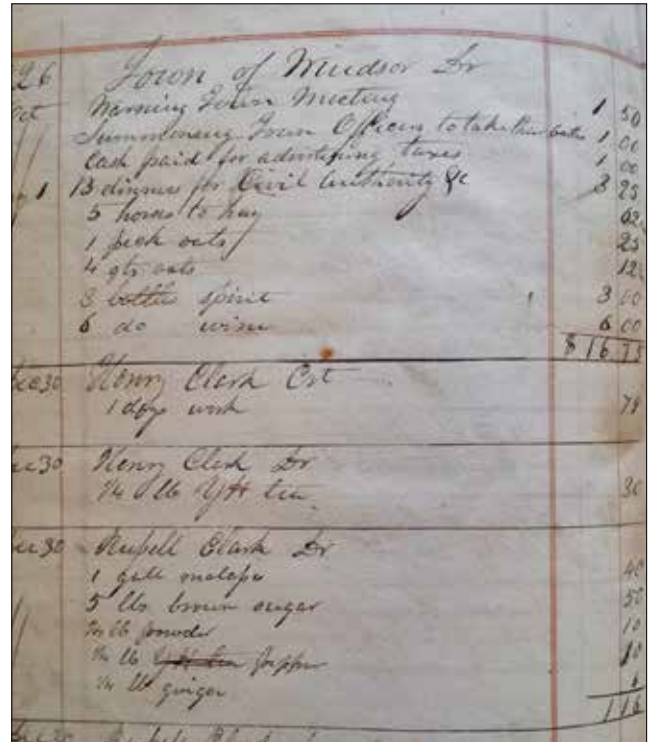 26 Town of Windsor Dr
Oct Warning Town Meeting 1 50
Summonsing Town Officers to take their oaths 1 00
Cash paid for advertising taxes 1 00
1 13 dinners for Civil Authority &c 3 25
5 horses to hay 62
1 peck oats 25
4 qts oats 12
3 bottles spirit 3 00
6 do wine 6 00
$16 75
Dec 30 Henry Clark Crt
1 days work 79
Dec 30 Henry Clark Dr
1/4 lb YH tea 30
Dec 30 Russell Clark Dr
1 gall molasses 40
5 lbs brown sugar 50
1/4 lb powder 10
1/4 lb pepper 10
1/4 lb ginger 6
1 16